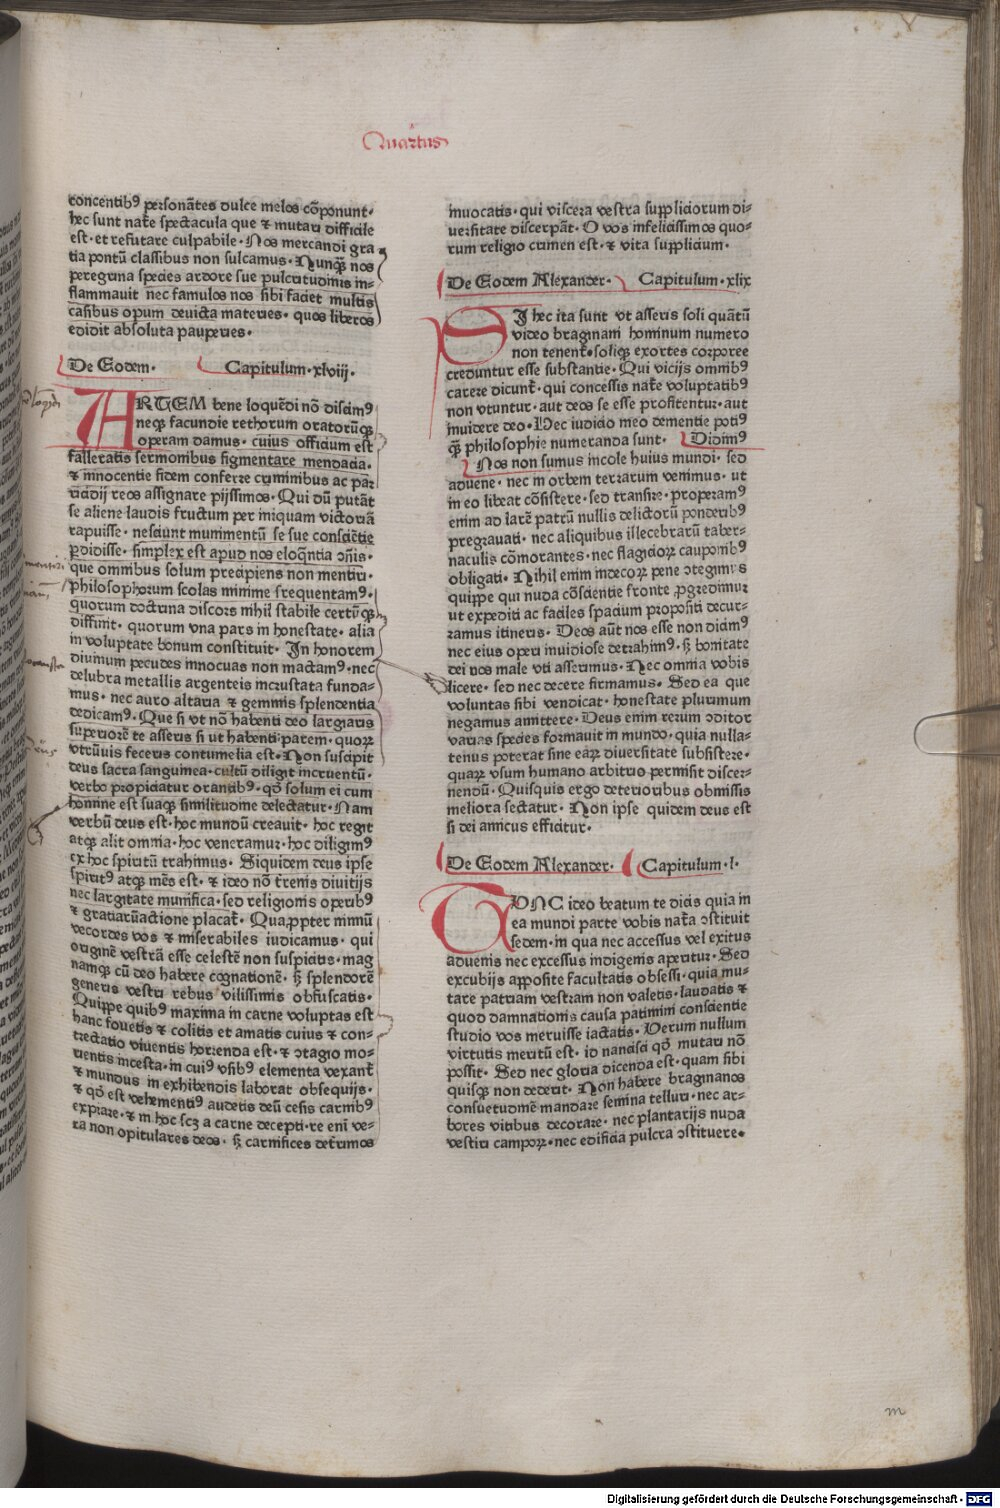 Quartus
concentibꝰ personātes dulce melos cōponunt·
hec sunt nat̄e spectacula que ⁊ mutari difficile
est· et refutare culpabile· Nos mercandi gra
tia pontū classibus non sulcamus· Nunq̄ꝫ nos
peregrina species ardore sue pulcritudinis in-
flammauit nec famulos nos sibi faciet multis
casibus opum deuicta materies· quos liberos
edidit absoluta pauperies·
De Eodem· Capitulum· xlviij·
ARTEM bene loquēdi nō discimꝰ
neqꝫ facundie rethorum oratorūqꝫ
operam damus· cuius officium est
falleratis sermonibus figmentare mendacia·
⁊ innocentie fidem conferre criminibus ac par
ricidij reos assignare pijssimos· Qui dū putāt
se aliene laudis fructum per iniquam victoriā
rapuisse· nesciunt munimentū se sue consciētie
ꝑdidisse· simplex est apud nos eloq̄ntia ↄ̄nis·
que omnibus solum precipiens non mentiri·
philosophorum scolas minime frequentamꝰ·
quorum doctrina discors nihil stabile certūqꝫ
diffinit· quorum vna pars in honestate· alia
in voluptate bonum constituit· In honorem
diuinum pecudes innocuas non mactamꝰ· nec
delubra metallis argenteis incrustata funda-
mus· nec auro altaria ⁊ gemmis splendentia
dedicamꝰ· Que si vt nō habenti deo largiaris
superiorē te asseris si vt habenti parem· quoꝝ
vtrūuis feceris contumelia est· Non suscipit
deus sacra sanguinea· cultū diligit incruentū·
verbo propiciatur orantibꝰ· qd̄ solum ei cum
homine est suaqꝫ similitudine delectatur· Nam
verbū deus est· hoc mundū creauit· hoc regit
atqꝫ alit omnia· hoc veneramur· hoc diligimꝰ
ex hoc spiritū trahimus· Siquidem deus ipse
spiritꝰ atqꝫ mēs est· ⁊ ideo nō t̄renis diuitijs
nec largitate munifica· sed religionis operibꝰ
⁊ gratiarūactione placat̄· Qua ꝓpter nimiū
vecordes vos ⁊ miserabiles iudicamus· qui
originē vestrā esse celestē non suspicitis· mag
namqꝫ cū deo habere cognationē· sꝫ splendorē
generis vestri rebus vilissimis obfuscatis·
Quippe quibꝰ maxima in carne voluptas est
hanc fouetis ⁊ colitis et amatis cuius ⁊ con-
trectatio viuentis horrenda est· ⁊ ↄtagio mo-
rientis incesta· in cuiꝰ vsibꝰ elementa vexant̄
⁊ mundus in exhibendis laborat obsequijs·
⁊ qd̄ est vehementiꝰ audetis deū cesis carnibꝰ
expiare· ⁊ in hoc scꝫ a carne decepti· re eni ve-
ra non opitulares deos· sꝫ carnifices det̄rimos
inuocatis· qui viscera vestra suppliciorum di-
uersitate discerpāt· O vos infelicissimos quo-
rum religio crimen est· ⁊ vita supplicium·
De Eodem Alexander· Capitulum· xlix
SI hec ita sunt vt asseris soli quātū
video bragmani hominum numero
non tenent̄· soliqꝫ exortes corporee
creduntur esse substantie· Qui vicijs omnibꝰ
carere dicunt̄· qui concessis nat̄e voluptatibꝰ
non vtuntur· aut deos se esse profitentur· aut
inuidere deo· Hec iudicio meo dementie potiꝰ
q̄ꝫ philosophie numeranda sunt· Didimꝰ
Nos non sumus incole huius mundi· sed
aduene· nec in orbem terrarum venimus· vt
in eo libeat cōsistere· sed transire· properamꝰ
enim ad larē patrū nullis delictorū ponderibꝰ
pregrauati· nec aliquibus illecebrarū taber-
naculis cōmorantes· nec flagicioꝝ cauponibꝰ
obligati· Nihil enim indecoꝝ pene ↄtegimus
quippe qui nuda cōscientie fronte ꝓgredimur
vt expediti ac faciles spacium propositi decur-
ramus itineris· Deos aūt nos esse non dicimꝰ
nec eius operi inuidiose detrahimꝰ· sꝫ bonitate
dei nos male vti asserimus· Nec omnia vobis
licere· sed nec decere firmamus· Sed ea que
voluntas sibi vendicat· honestate plurimum
negamus amittere· Deus enim rerum ↄditor
varias species formauit in mundo· quia nulla-
tenus poterat sine eaꝝ diuersitate subsistere·
quaꝝ vsum humano arbitrio permisit discer-
nendū· Quisquis ergo deterioribus obmissis
meliora sectatur· Non ipse quidem deus est
si dei amicus efficitur·
De Eodem Alexander· Capitulum· l·
TVNC ideo beatum te dicis quia in
ea mundi parte vobis nat̄a ↄstituit
sedem· in qua nec accessus vel exitus
aduenis nec excessus indigenis aperitur· Sed
excubijs apposite facultatis obsessi· quia mu-
tare patriam vestram non valetis· laudatis ⁊
quod damnationis causa patimini conscientie
studio vos meruisse iactatis· Verum nullum
virtutis meritū est· id nancisci qd̄ mutari nō
possit· Sed nec gloria dicenda est· quam sibi
quisqꝫ non dederit· Non habere bragmanos
consuetudinē mandare semina telluri· nec ar-
bores vitibus decorare· nec plantarijs nuda
vestiri campoꝝ· nec edificia pulcra ↄstituere·
m
Digitalisierung gefördert durch die Deutsche Forschungsgemeinschaft · DFG